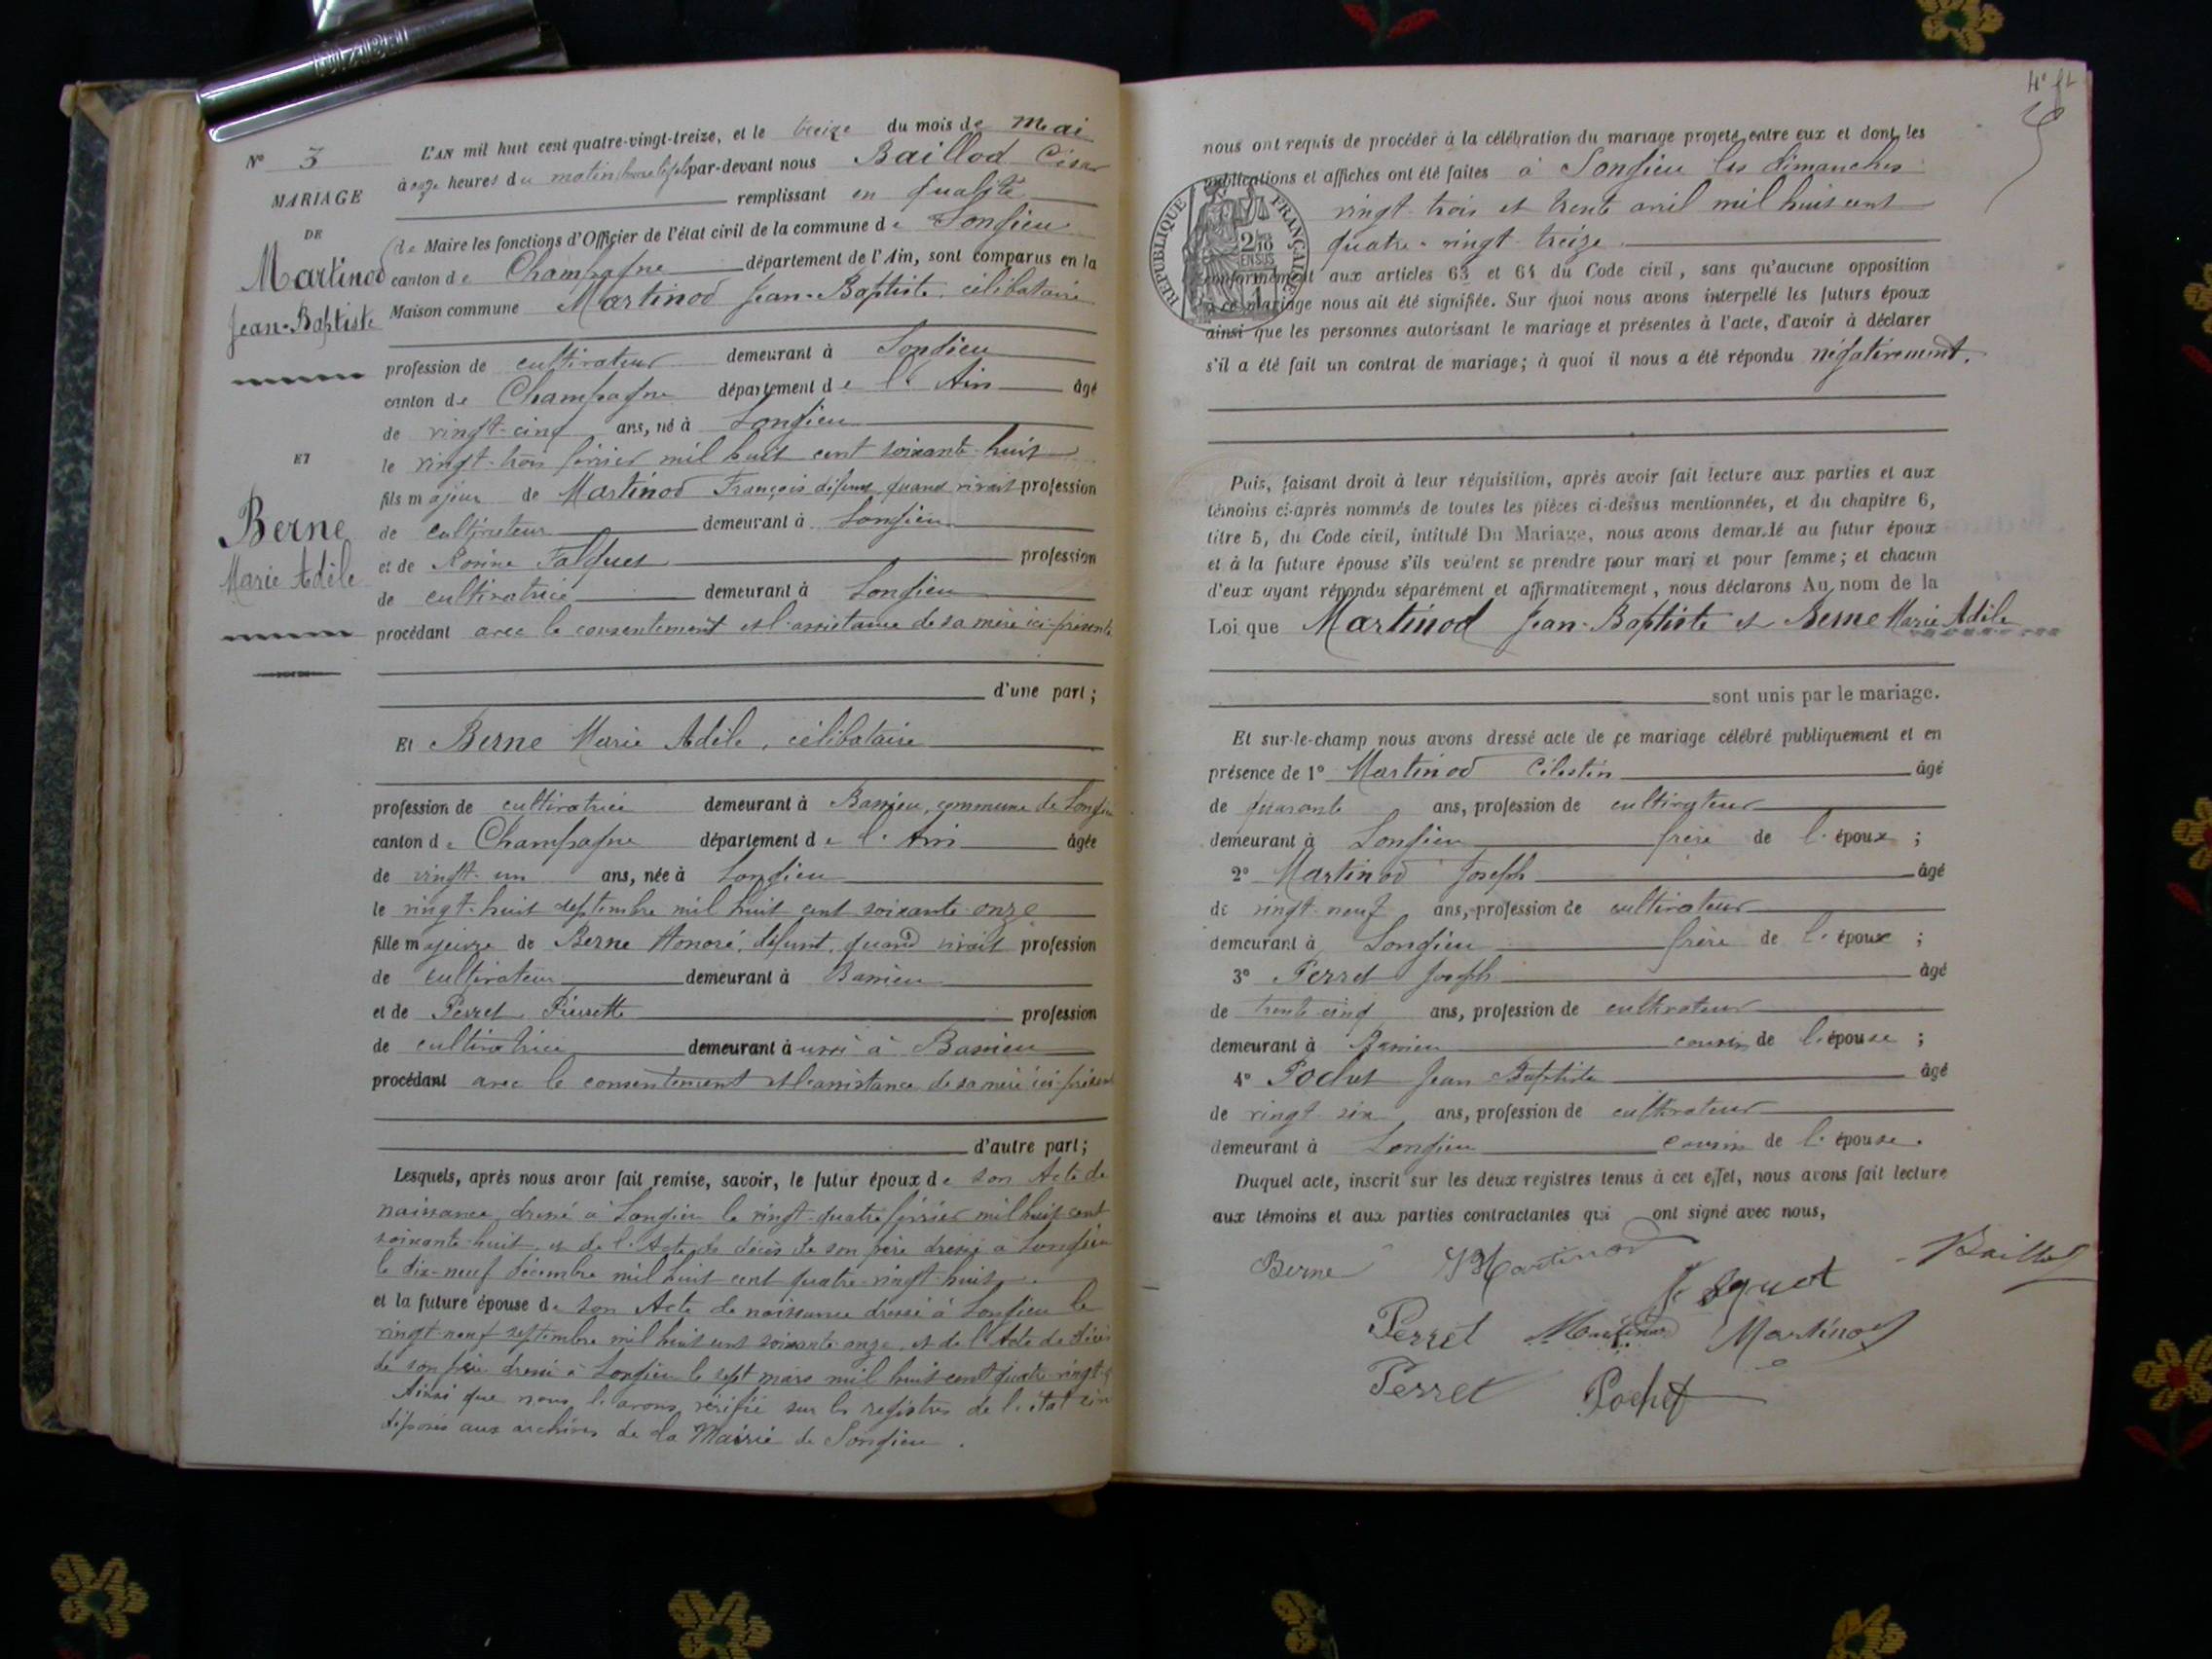 N° 3
MARIAGE
DE
Martinod
Jean-Baptiste
ET
Berne
Marie Adèle
L'AN mil huit cent quatre-vingt-treize, et le treize du mois de Mai
à onze heures du matin par-devant nous Baillod César
remplissant en qualité
de Maire les fonctions d'Officier de l'état civil de la commune de Songieu
canton de Champagne département de l'Ain, sont comparus en la
Maison commune Martinod Jean-Baptiste, célibataire
profession de cultivateur demeurant à Songieu
canton de Champagne département de l'Ain âgé
de vingt-cinq ans, né à Songieu
le vingt-trois février mil huit cent soixante-huit
fils majeur de Martinod François défunt, quand vivait profession
de cultivateur demeurant à Songieu
et de profession
de cultivatrice demeurant à Songieu
procédant avec le consentement et l'assistance de sa mère ici-présente
d'une part ;
Et Berne Marie Adèle, célibataire
profession de cultivatrice demeurant à Bassieu, commune de Songieu
canton de Champagne département de l'Ain âgée
de vingt-un ans, née à Songieu
le vingt-huit septembre mil huit cent soixante-onze
fille majeure de Berne Honoré, défunt, quand vivait profession
de cultivateur demeurant à Bassieu
et de Perret Pierrette profession
de cultivatrice demeurant à aussi à Bassieu
procédant avec le consentement et l'assistance de sa mère ici-présente
d'autre part ;
Lesquels, après nous avoir fait remise, savoir, le futur époux de son Acte de
naissance dressé à Songieu le vingt-quatre février mil huit cent
soixante-huit, et de l'Acte de décès de son père dressé à Songieu
le dix-neuf décembre mil huit cent quatre-vingt-huit
et la future épouse de son Acte de naissance dressé à Songieu le
vingt-neuf septembre mil huit cent soixante-onze, et de l'Acte de décès
de son père dressé à Songieu le sept mars mil huit cent quatre-vingt-
Ainsi que nous l'avons vérifié sur les registres de l'état civil
déposés aux archives de la Mairie de Songieu.
nous ont requis de procéder à la célébration du mariage projeté entre eux et dont les
publications et affiches ont été faites à Songieu les dimanches
vingt-trois et trente avril mil huit cent
quatre-vingt-treize
conformément aux articles 63 et 64 du Code civil, sans qu'aucune opposition
à ce mariage nous ait été signifiée. Sur quoi nous avons interpellé les futurs époux
ainsi que les personnes autorisant le mariage et présentes à l'acte, d'avoir à déclarer
s'il a été fait un contrat de mariage ; à quoi il nous a été répondu négativement.
REPUBLIQUE FRANÇAISE
2/10 EN SUS
Puis, faisant droit à leur réquisition, après avoir fait lecture aux parties et aux
témoins ci-après nommés de toutes les pièces ci-dessus mentionnées, et du chapitre 6,
titre 5, du Code civil, intitulé Du Mariage, nous avons demandé au futur époux
et à la future épouse s'ils veulent se prendre pour mari et pour femme ; et chacun
d'eux ayant répondu séparément et affirmativement, nous déclarons Au nom de la
Loi que Martinod Jean-Baptiste et Berne Marie Adèle
sont unis par le mariage.
Et sur-le-champ nous avons dressé acte de ce mariage célébré publiquement et en
présence de 1° Martinod Célestin âgé
de quarante ans, profession de cultivateur
demeurant à Songieu frère de l'époux ;
2° Martinod Joseph âgé
de vingt-neuf ans, profession de cultivateur
demeurant à Songieu frère de l'époux ;
3° Perret Joseph âgé
de trente-cinq ans, profession de cultivateur
demeurant à Bassieu cousin de l'épouse ;
4° Pochet Jean Baptiste âgé
de vingt-six ans, profession de cultivateur
demeurant à Songieu cousin de l'épouse.
Duquel acte, inscrit sur les deux registres tenus à cet effet, nous avons fait lecture
aux témoins et aux parties contractantes qui ont signé avec nous,
Berne Martinod Baillod
Perret Martinod Martinod
Perret Pochet